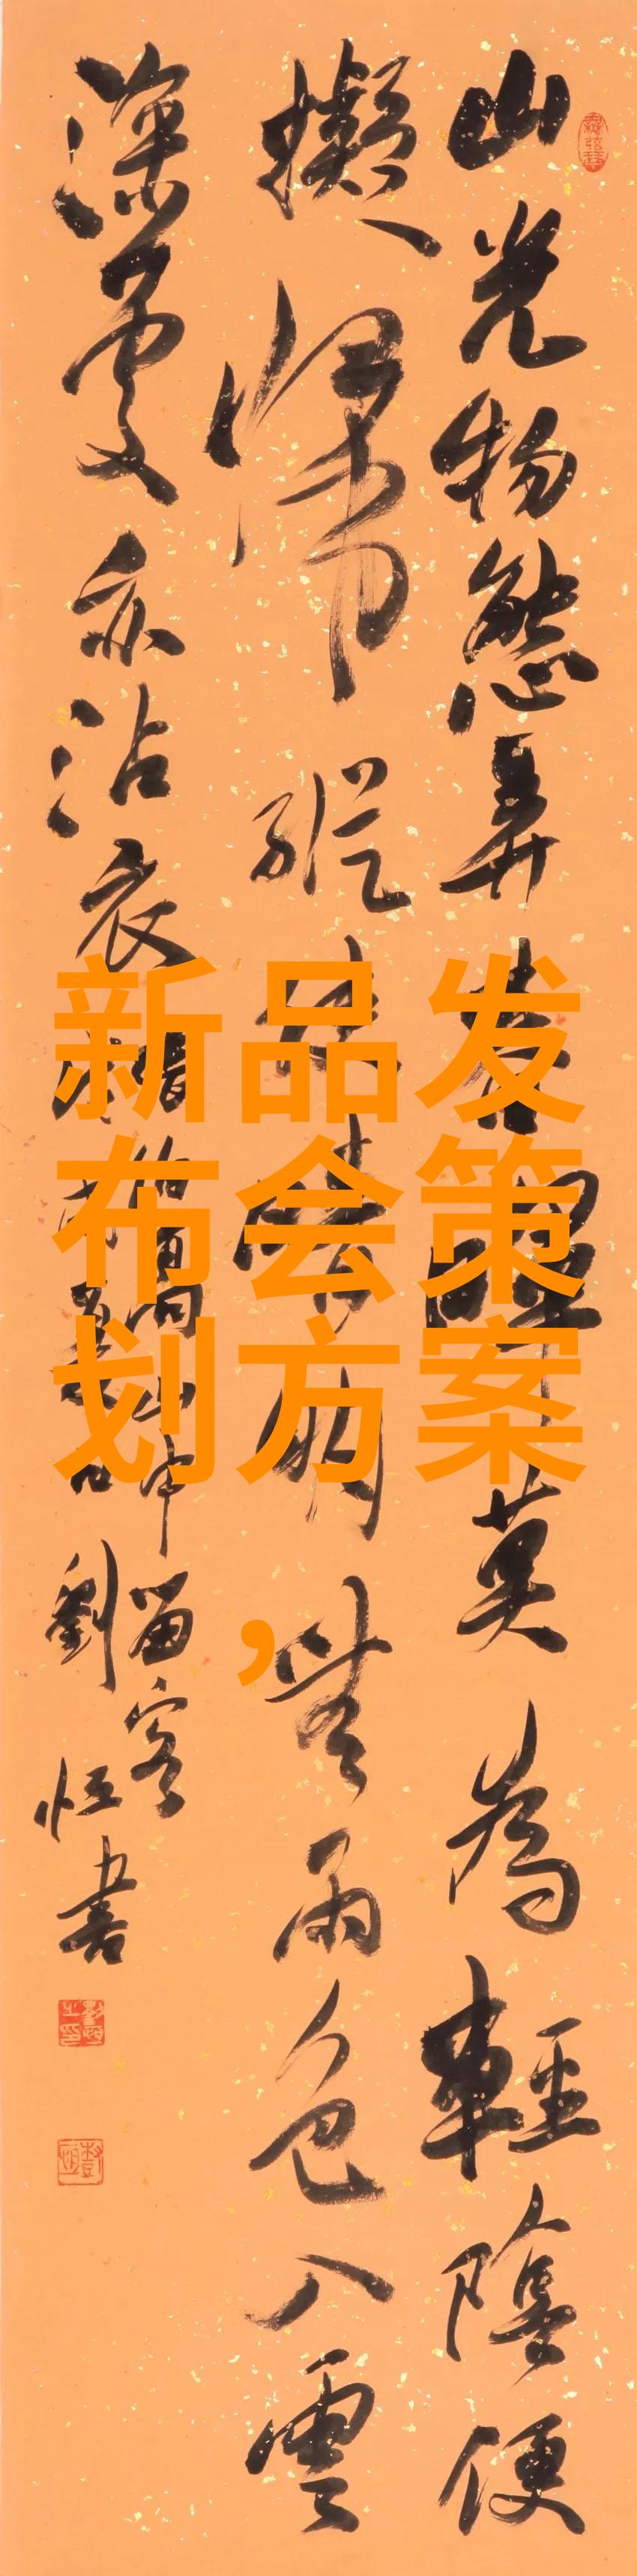 山光物態弄春暉莫為輕陰便
擬歸縱使晴明無雨色入雲
深處亦沾衣
山中留客
劉恒書
新品发
布会策
划方案
，